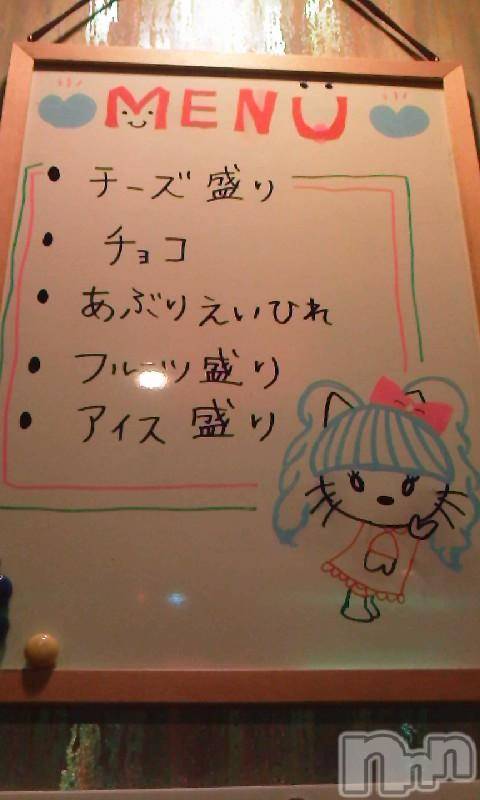 MENU
• チーズ盛り
• チョコ
• あぶりえいひれ
• フルーツ盛り
• アイス盛り
nnn